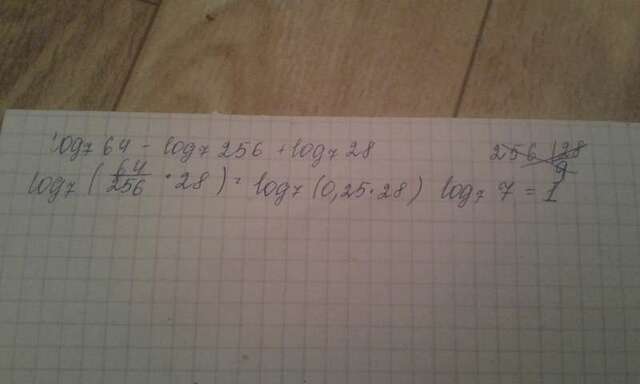 log₇ 64 - log₇ 256 + log₇ 28
log₇ (64/256 · 28) = log₇ (0,25·28) log₇ 7 = 1